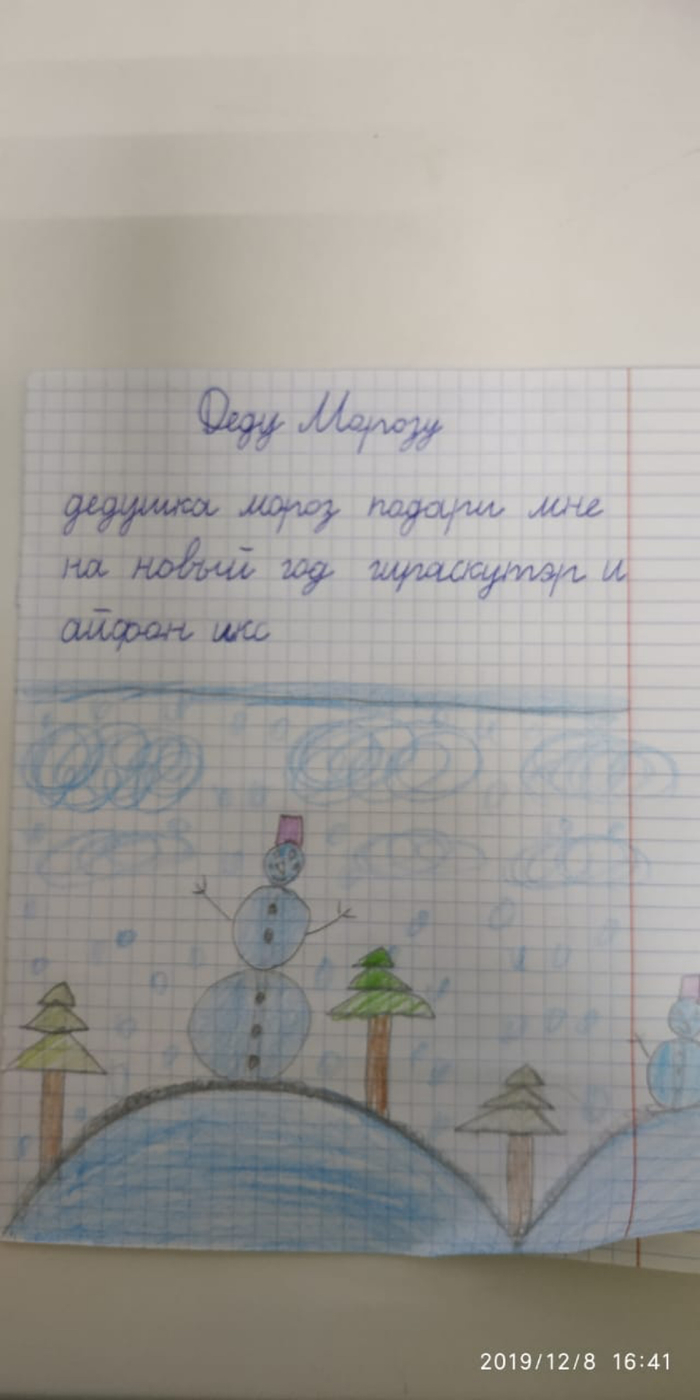 Деду Морозу
дедушка мороз подари мне
на новый год гираскутэр и
айфон икс
2019/12/8 16:41